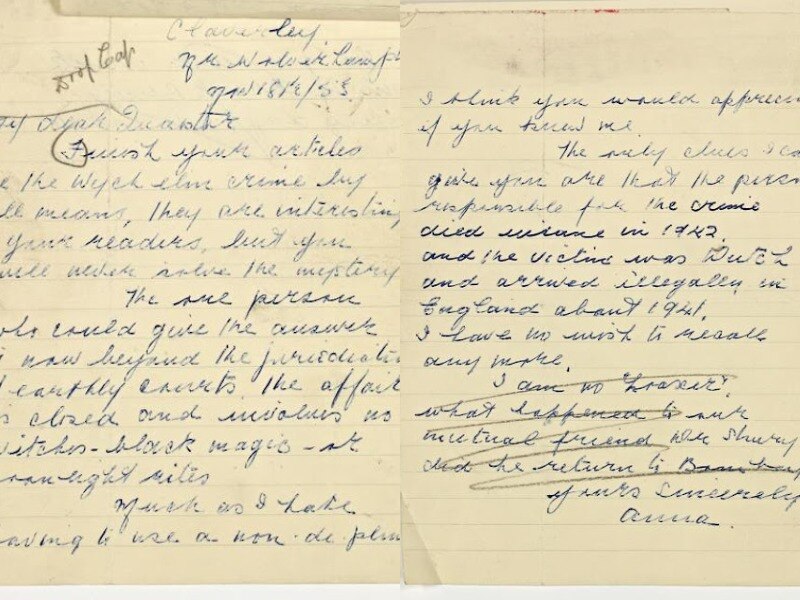 Claverley
Nr Wolverhampt
Nov 18th/53
Drop Cap
My dear Quaestor
Finish your articles
e the Wych elm crime by
ll means, they are interesting
your readers, but you
will never solve the mystery
The one person
who could give the answer
is now beyond the jurisdiction
earthly courts the affair
s closed and involves no
witches - black magic - or
moonlight rites
Much as I hate
aving to use a non-de-plum
I think you would apprecia
if you knew me.
The only clues I can
give you are that the person
responsible for the crime
died insane in 1942.
and the victim was Dutch
and arrived illegally in
England about 1941.
I have no wish to recall
any more.
I am no "hoaxer".
what happened to our
mutual friend
did he return to Bombay
yours Sincerely
Anna.